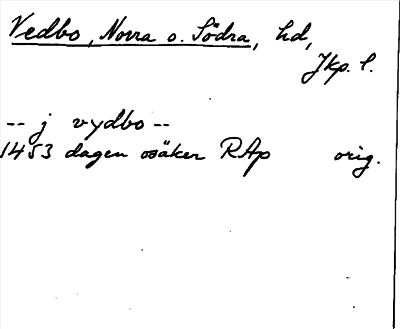 Vedbo, Norra o. Södra, hd,
Jkp. l.
-- j vydbo --
1453 dagen osäker RAp orig.